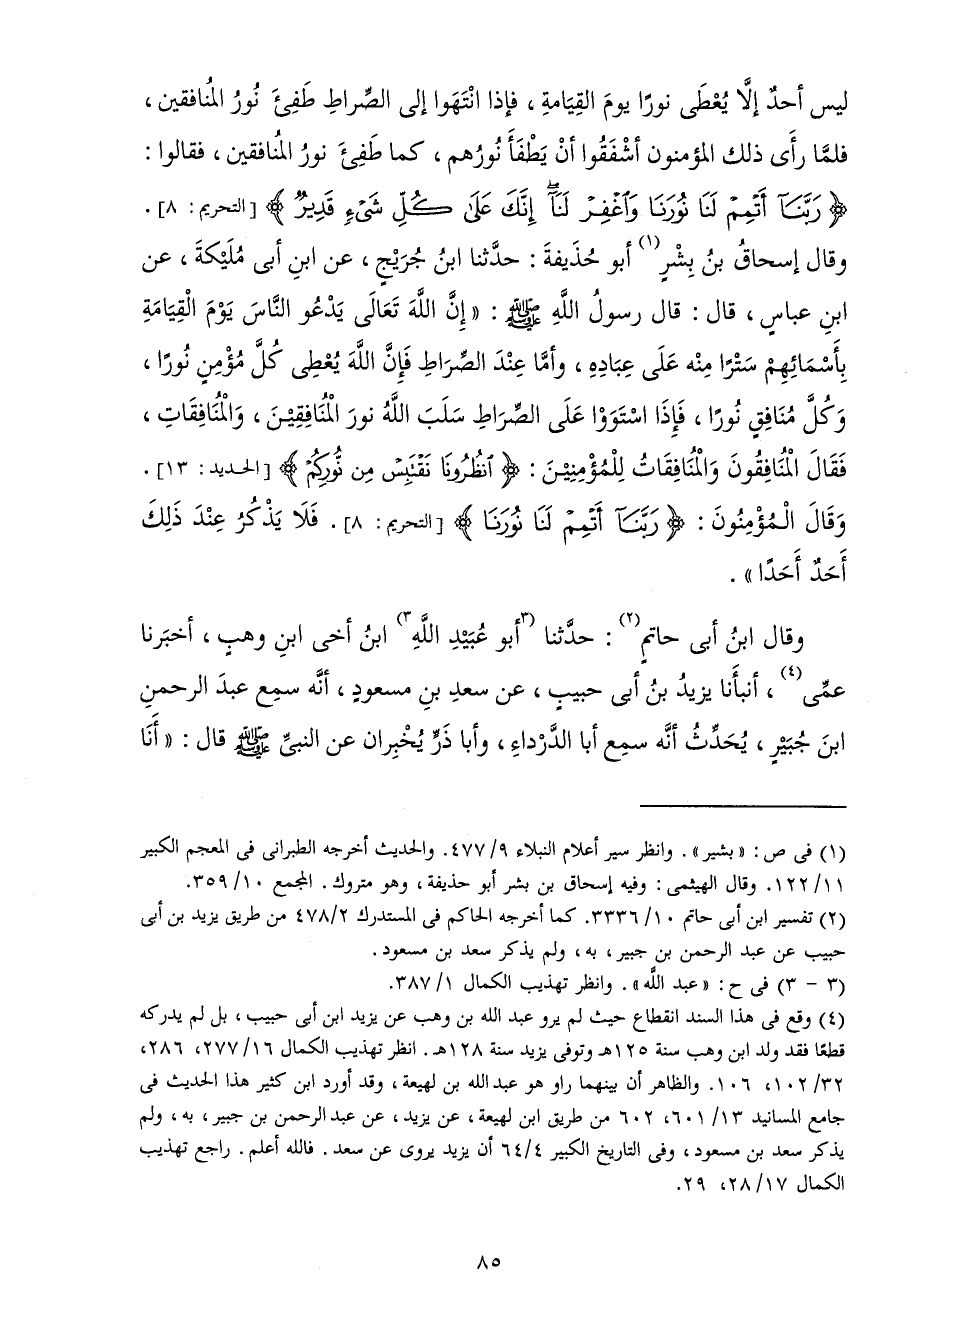 ليس أحدٌ إلَّا يُعْطَى نورًا يومَ القِيَامةِ ، فإذا انْتَهَوا إلى الصِّراطِ طَفِئَ نُورُ المُنافقين ،
فلمَّا رأَى ذلك المؤمنون أشْفَقُوا أنْ يَطْفَأَ نُورُهم ، كما طَفِئَ نورُ المُنافقين ، فقالوا :
﴿ رَبَّنَآ أَتْمِمْ لَنَا نُورَنَا وَٱغْفِرْ لَنَآ ۖ إِنَّكَ عَلَىٰ كُلِّ شَىْءٍ قَدِيرٌ ﴾ [ التحريم : ٨ ] .
وقال إسحاقُ بنُ بِشْرٍ(١) أبو حُذَيفةَ : حدَّثنا ابنُ جُرَيْجٍ ، عن ابنِ أبى مُلَيْكةَ ، عن
ابنِ عباسٍ ، قال : قال رسولُ اللَّهِ ﷺ : « إنَّ اللَّهَ تَعَالَى يَدْعُو النَّاسَ يَوْمَ الْقِيَامَةِ
بِأَسْمَائِهِمْ سَتْرًا مِنْه عَلَى عِبَادِهِ ، وأمَّا عِنْدَ الصِّرَاطِ فَإِنَّ اللَّهَ يُعْطِى كُلَّ مُؤْمِنٍ نُورًا ،
وَكُلَّ مُنَافِقٍ نُورًا ، فَإِذَا اسْتَوَوْا عَلَى الصِّرَاطِ سَلَبَ اللَّهُ نورَ الْمُنَافِقِيْنَ ، وَالْمُنَافِقَاتِ ،
فَقَالَ الْمُنَافِقُونَ وَالْمُنَافِقَاتُ لِلْمُؤْمِنِيْنَ : ﴿ ٱنظُرُونَا نَقْتَبِسْ مِن نُّورِكُمْ ﴾ [ الحديد : ١٣ ] .
وَقَالَ الْمُؤْمِنُونَ : ﴿ رَبَّنَآ أَتْمِمْ لَنَا نُورَنَا ﴾ [ التحريم : ٨ ] . فَلَا يَذْكُرُ عِنْدَ ذَلِكَ
أَحَدٌ أَحَدًا » .
وقال ابنُ أبى حاتمٍ(٢) : حدَّثنا (٣أبو عُبَيْدِ اللَّهِ٣) ابنُ أخى ابنِ وهبٍ ، أخبَرنا
عمِّى(٤) ، أنبأَنا يزيدُ بنُ أبى حبيبٍ ، عن سعدِ بنِ مسعودٍ ، أنَّه سمِع عبدَ الرحمنِ
ابنَ جُبَيْرٍ ، يُحَدِّثُ أنَّه سمِع أبا الدَّرْداءِ ، وأبا ذَرٍّ يُخْبِران عن النبىِّ ﷺ قال : « أَنَا
(١) فى ص : « بشير » . وانظر سير أعلام النبلاء ٤٧٧/٩. والحديث أخرجه الطبرانى فى المعجم الكبير
١٢٢/١١. وقال الهيثمى : وفيه إسحاق بن بشر أبو حذيفة ، وهو متروك . المجمع ٣٥٩/١٠.
(٢) تفسير ابن أبى حاتم ٣٣٣٦/١٠. كما أخرجه الحاكم فى المستدرك ٤٧٨/٢ من طريق يزيد بن أبى
حبيب عن عبد الرحمن بن جبير ، به ، ولم يذكر سعد بن مسعود .
(٣ - ٣) فى ح : « عبد اللَّه » . وانظر تهذيب الكمال ٣٨٧/١.
(٤) وقع فى هذا السند انقطاع حيث لم يرو عبد الله بن وهب عن يزيد ابن أبى حبيب ، بل لم يدركه
قطعًا فقد ولد ابن وهب سنة ١٢٥هـ وتوفى يزيد سنة ١٢٨هـ . انظر تهذيب الكمال ٢٧٧/١٦، ٢٨٦،
١٠٢/٣٢، ١٠٦. والظاهر أن بينهما راو هو عبد الله بن لهيعة ، وقد أورد ابن كثير هذا الحديث فى
جامع المسانيد ٦٠١/١٣، ٦٠٢ من طريق ابن لهيعة ، عن يزيد ، عن عبد الرحمن بن جبير ، به ، ولم
يذكر سعد بن مسعود ، وفى التاريخ الكبير ٦٤/٤ أن يزيد يروى عن سعد . فالله أعلم . راجع تهذيب
الكمال ٢٨/١٧، ٢٩.
٨٥